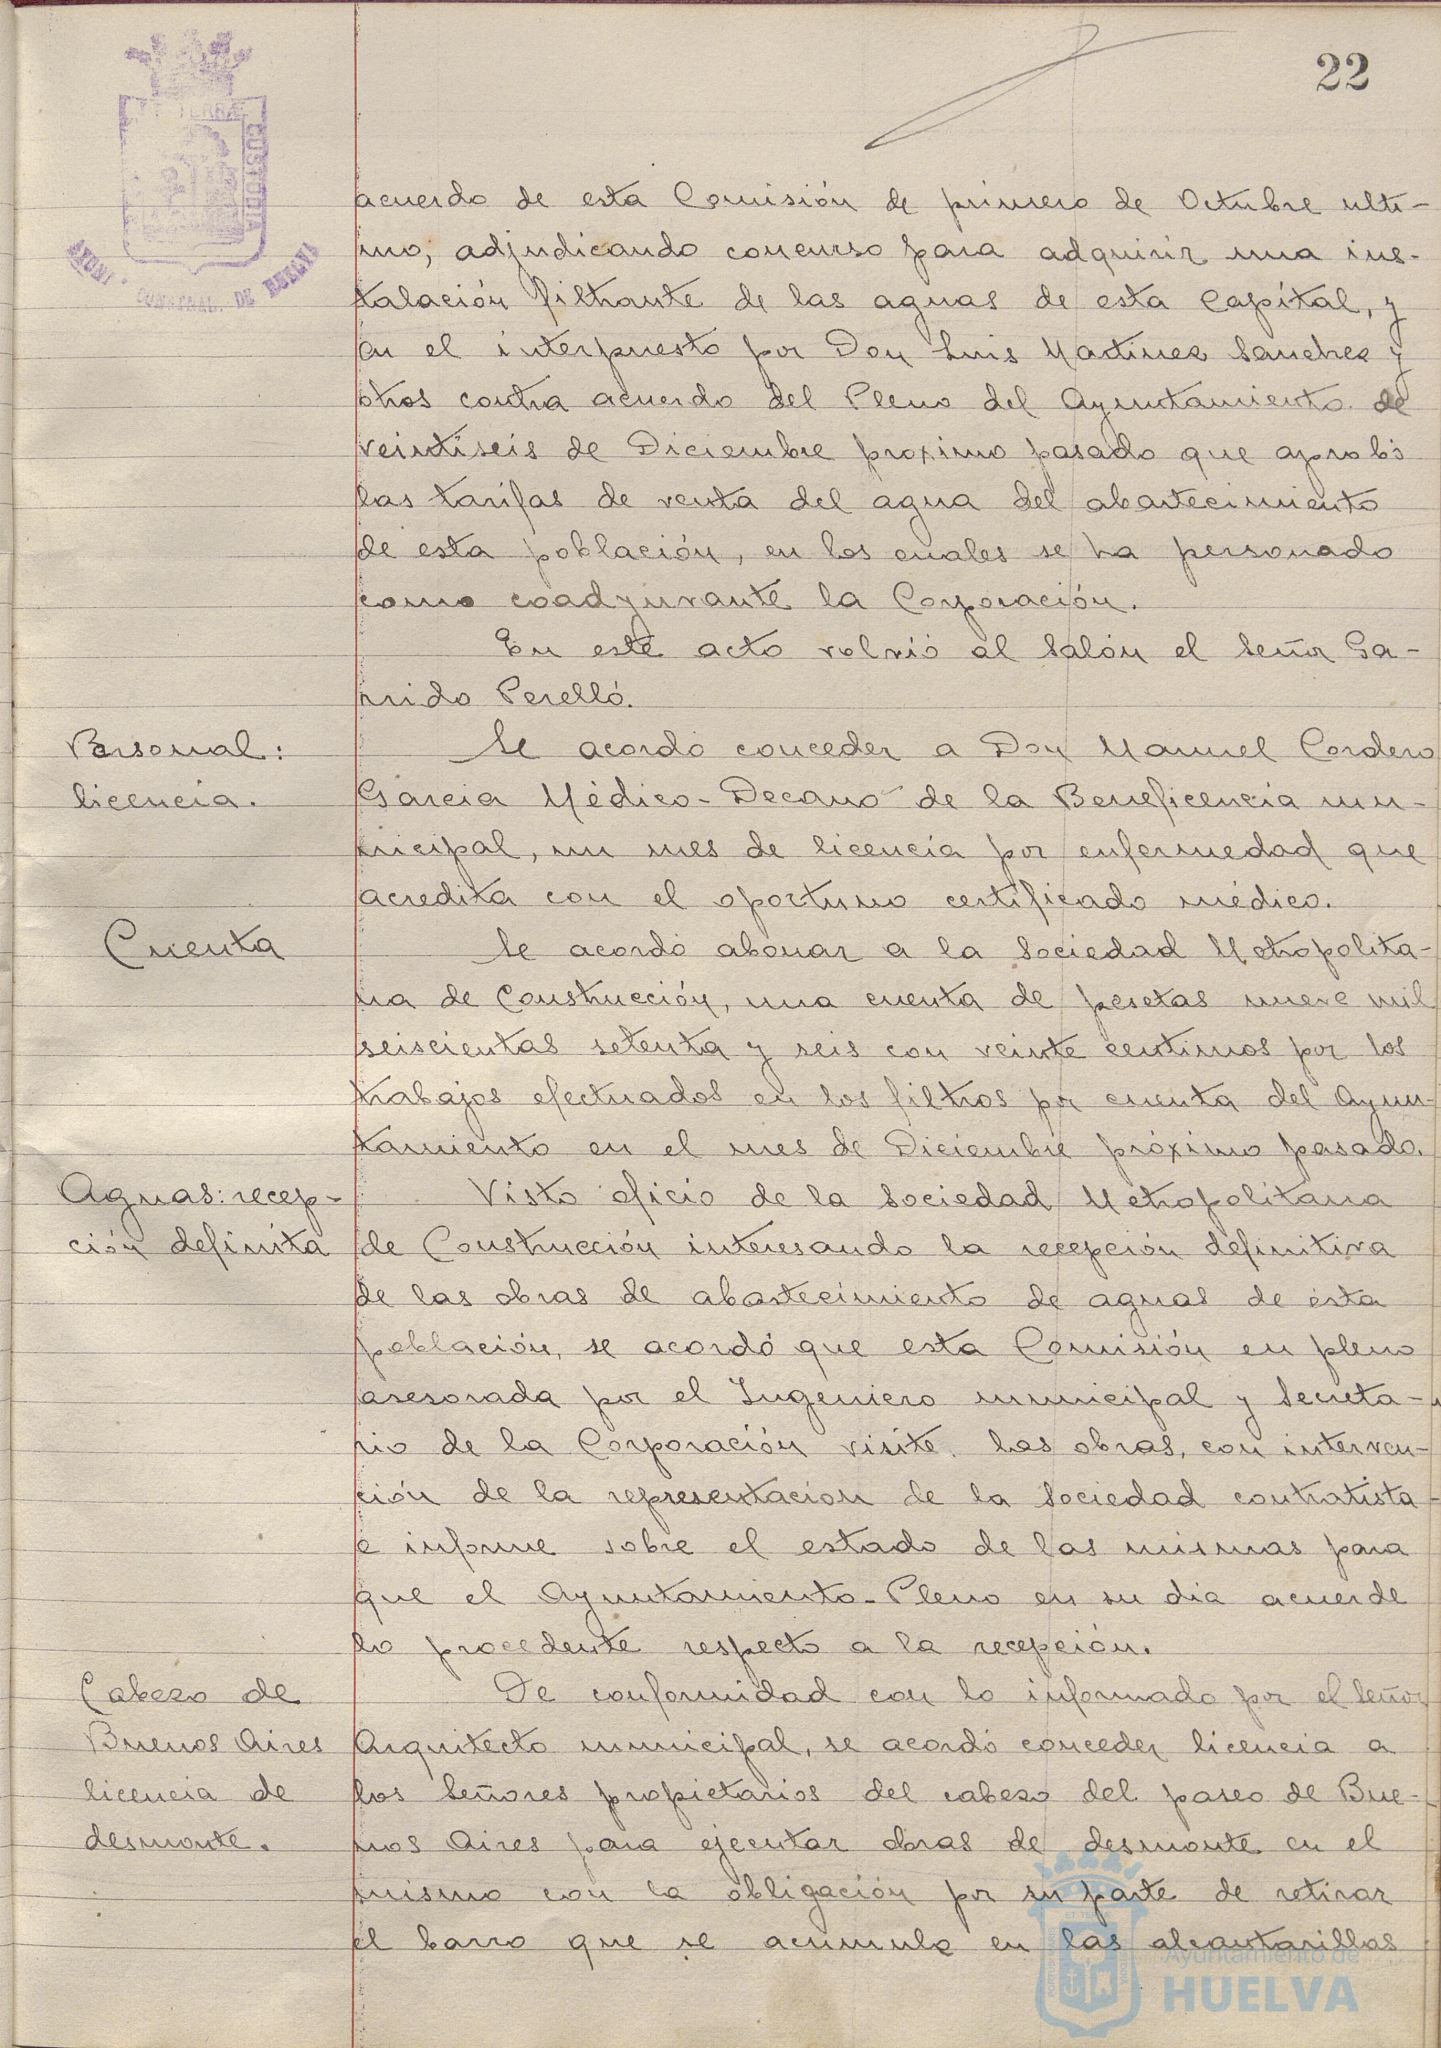 22
TERRÆ
CUSTODIA
AYUNT. CONSTNAL. DE HUELVA
acuerdo de esta Comisión de primero de Octubre ulti-
mo, adjudicando concurso para adquirir una ins-
talación filtrante de las aguas de esta Capital, y
en el interpuesto por Don Luis Martinez Sanchez y
otros contra acuerdo del Pleno del Ayuntamiento de
veintiseis de Diciembre proximo pasado que aprobó
las tarifas de venta del agua del abastecimiento
de esta población, en los cuales se ha personado
como coadyuvante la Corporación.
En este acto volvió al Salón el Señor Ga-
rrido Perelló.
Personal:
licencia.
Se acordó conceder a Don Manuel Cordero
Garcia Médico-Decano de la Beneficencia mu-
nicipal, un mes de licencia por enfermedad que
acredita con el oportuno certificado médico.
Cuenta
Se acordó abonar a la Sociedad Metropolita-
na de Construcción, una cuenta de pesetas nueve mil
seiscientas setenta y seis con veinte centimos por los
trabajos efectuados en los filtros por cuenta del Ayun-
tamiento en el mes de Diciembre próximo pasado.
Aguas: recep-
ción definita
Visto oficio de la Sociedad Metropolitana
de Construcción interesando la recepción definitiva
de las obras de abastecimiento de aguas de esta
población, se acordó que esta Comisión en pleno
asesorada por el Ingeniero municipal y Secreta-
rio de la Corporación visite las obras, con interven-
ción de la representacion de la Sociedad contratista
e informe sobre el estado de las mismas para
que el Ayuntamiento-Pleno en su dia acuerde
lo procedente respecto a la recepción.
Cabezo de
Buenos Aires
licencia de
desmonte.
De conformidad con lo informado por el Señor
Arquitecto municipal, se acordó conceder licencia a
los Señores propietarios del cabezo del paseo de Bue-
nos Aires para ejecutar obras de desmonte en el
mismo con la obligación por su parte de retirar
el barro que se acumule en las alcantarillas
Ayuntamiento de
HUELVA